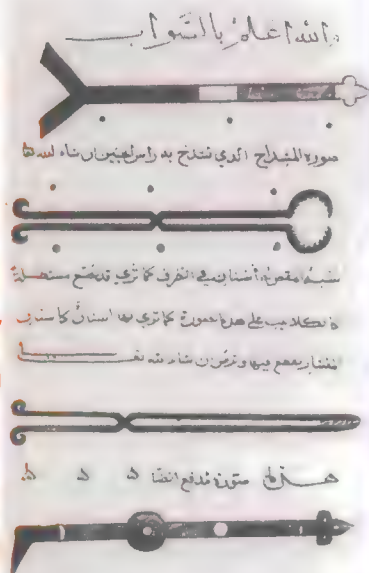 والله اعلم بالصواب
صورة المشداخ الذي تشدخ به راس الجنين ان شاء الله ها
شبه المقص له اسنان في الطرف كما تري قد تصنع مستطيلة
كالكلاليب على هذه الصورة كما تري لها اسنان كاسنان
المنشار يقطع بها وترض ان شاء الله تعا
هذه صورة مدفع ايضا ه ه ه